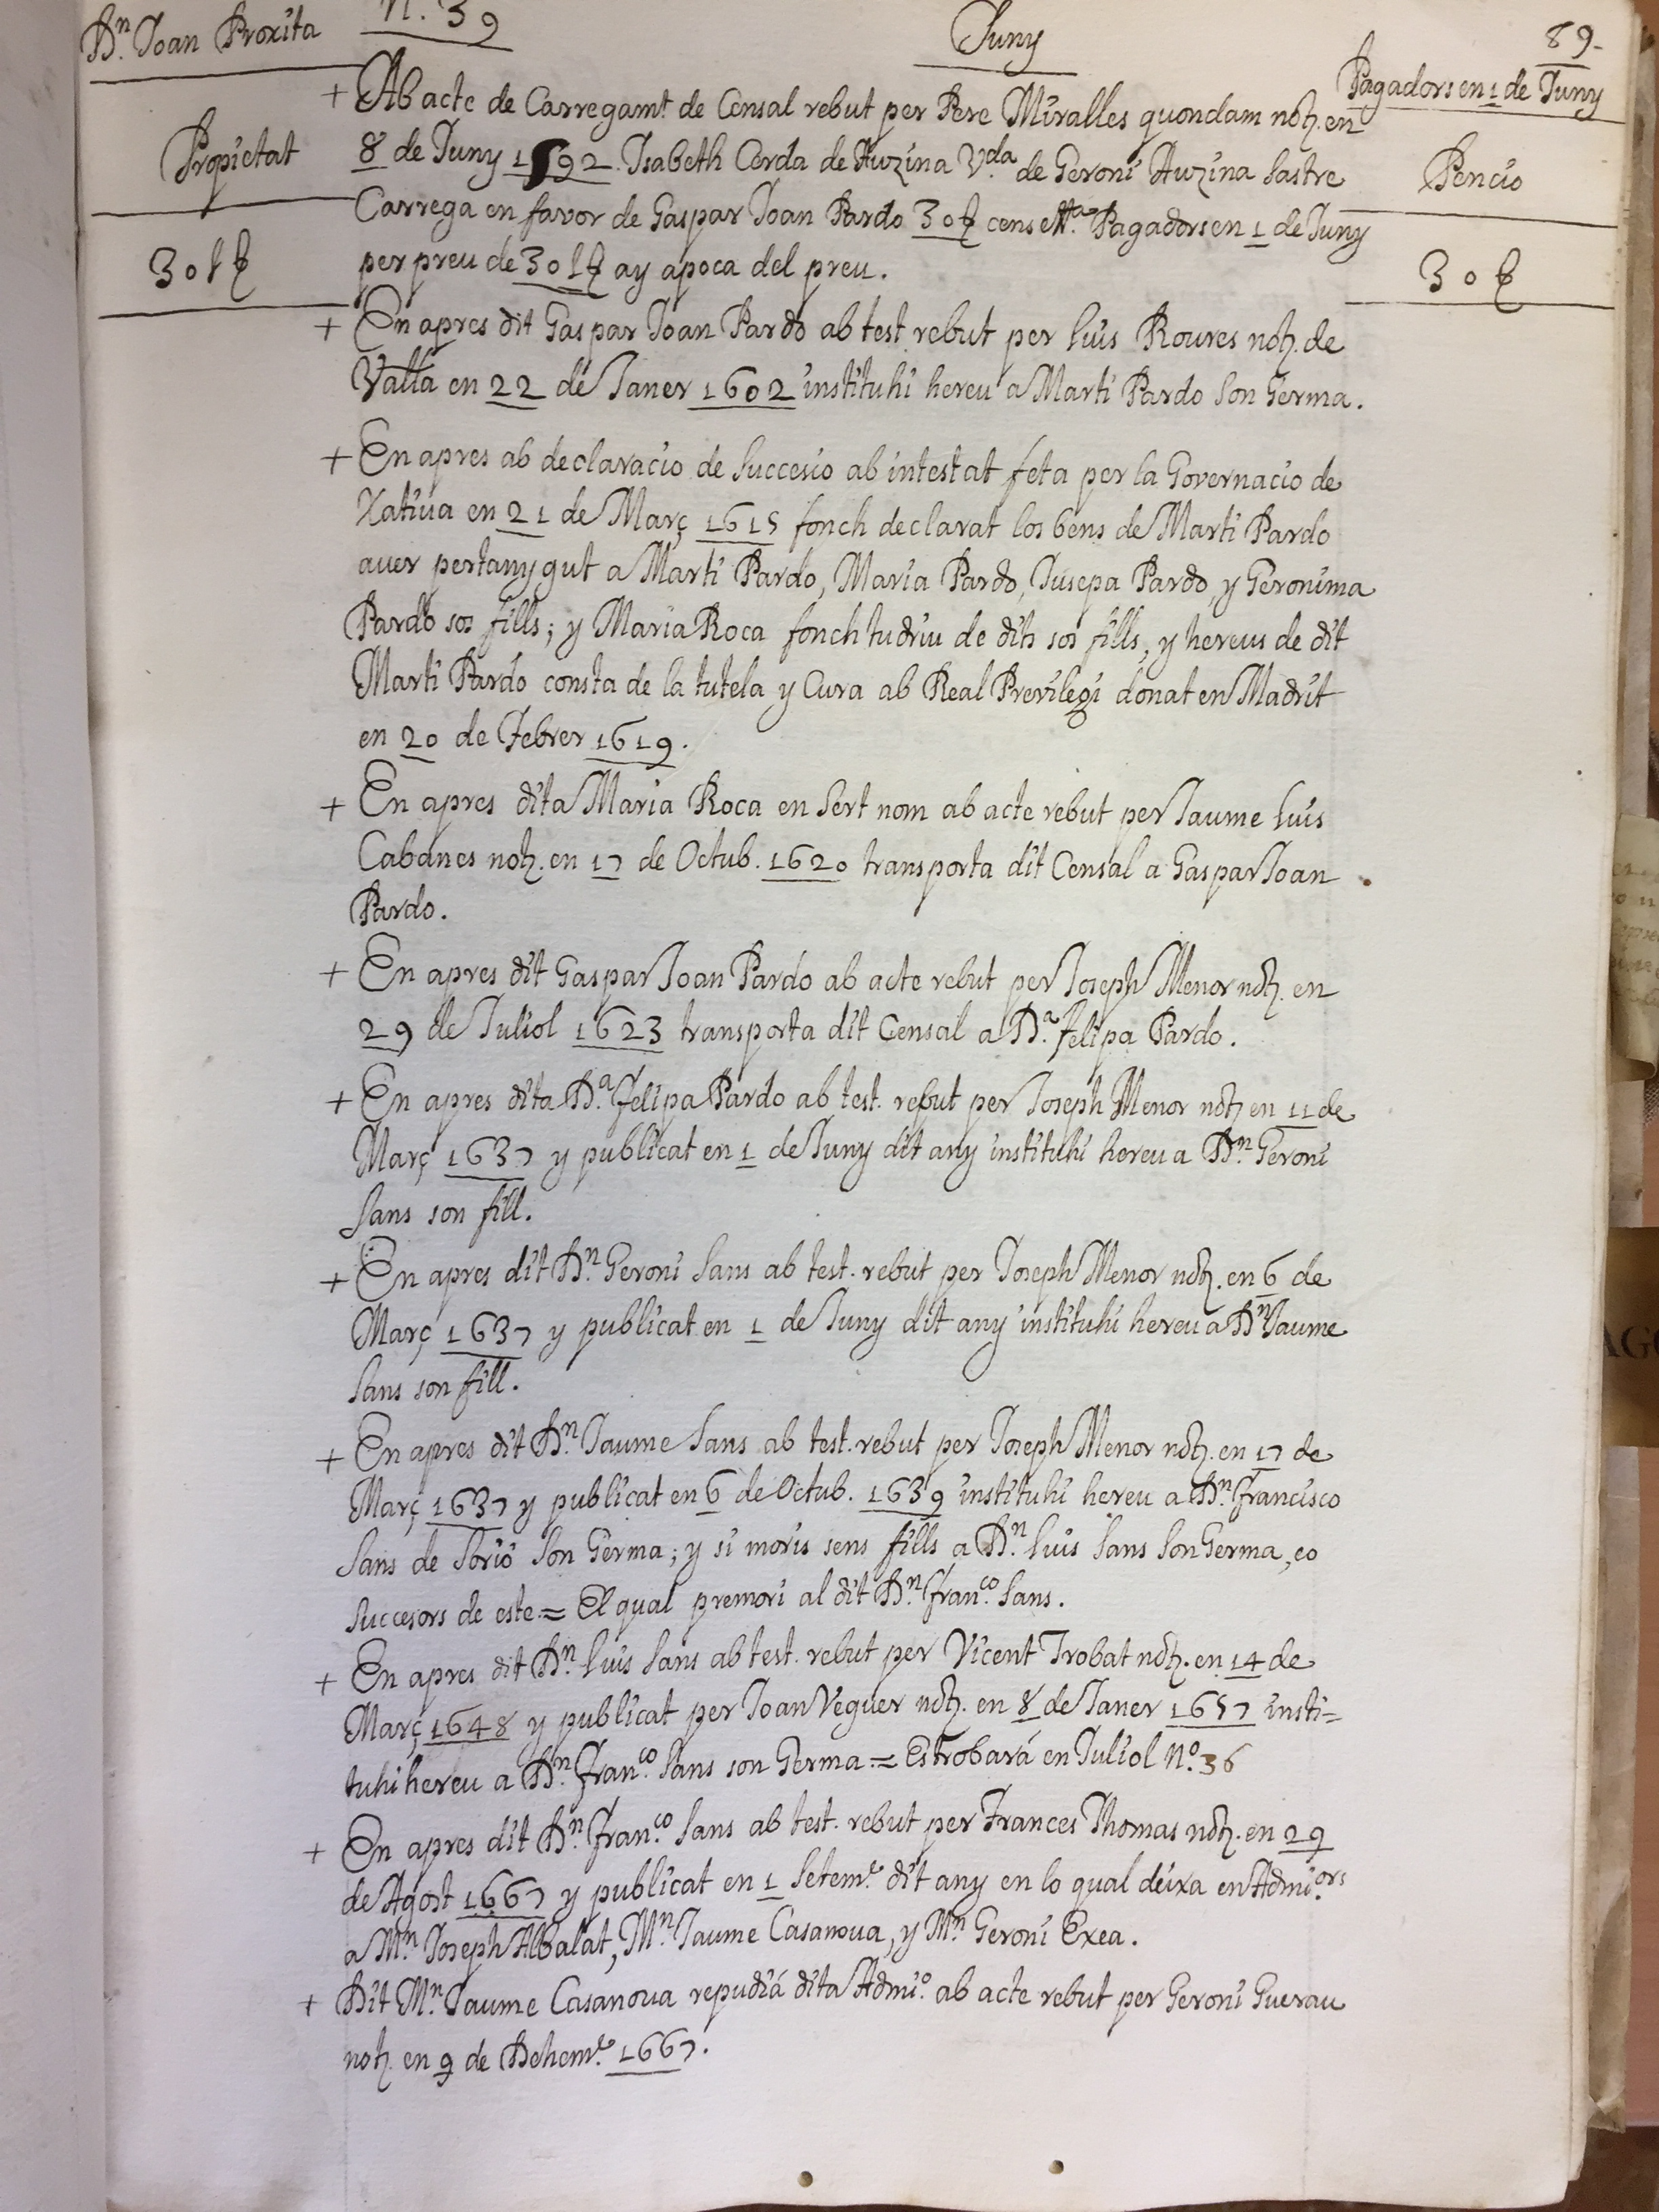 Dn. Joan Proxita
N. 39
Juny
89.
Pagadors en 1 de Juny
Propietat
Pencio
30 l ƺ
30 ƺ
+ Ab acte de Carregamt. de Censal rebut per Pere Miralles quondam noty. en
8 de Juny 1592. Isabeth Cerda de Auzina Vda. de Geroni Auzina Sastre
Carrega en favor de Gaspar Joan Pardo 30 ƺ cens Pagadors en 1 de Juny
per preu de 30 l ƺ ay apoca del preu.
+ En apres dit Gaspar Joan Pardo ab test. rebut per Luis Roures noty. de
Valla en 22 de Janer 1602 instituhi hereu a Marti Pardo Son Germa.
+ En apres ab declaracio de Succesio ab intestat feta per la Governacio de
Xativa en 21 de Març 1615 fonch declarat los bens de Marti Pardo
aver pertanygut a Marti Pardo, Maria Pardo, Jusepa Pardo, y Geronima
Pardo sos fills; y Maria Roca fonch tudriu de dits sos fills, y hereus de dit
Marti Pardo consta de la tutela y Cura ab Real Previlegi donat en Madrit
en 20 de Febrer 1619.
+ En apres dita Maria Roca en Sert nom ab acte rebut per Jaume Luis
Cabanes noty. en 17 de Octub. 1620 transporta dit Censal a Gaspar Joan
Pardo.
+ En apres dit Gaspar Joan Pardo ab acte rebut per Joseph Menor noty. en
29 de Juliol 1623 transporta dit Censal a Da. Felipa Pardo.
+ En apres dita Da. Felipa Pardo ab test. rebut per Joseph Menor noty en 11 de
Març 1637 y publicat en 1 de Juny dit any instituhi hereu a Dn. Geroni
Sans son fill.
+ En apres dit Dn. Geroni Sans ab test. rebut per Joseph Menor noty. en 6 de
Març 1637 y publicat en 1 de Juny dit any instituhi hereu a Dn Jaume
Sans son fill.
+ En apres dit Dn. Jaume Sans ab test. rebut per Joseph Menor noty. en 17 de
Març 1637 y publicat en 6 de Octub. 1639 instituhi hereu a Dn. Francisco
Sans de Sorió Son Germa; y si moris sens fills a Dn. Luis Sans Son Germa, eo
Succesors de este = El qual premori al dit Dn. Franco. Sans.
+ En apres dit Dn. Luis Sans ab test. rebut per Vicent Trobat noty. en 14 de
Març 1648 y publicat per Joan Veguer noty. en 8 de Janer 1657 insti=
tuhi hereu a Dn. Franco. Sans son Germa = Estrobará en Juliol No. 36
+ En apres dit Dn. Franco. Sans ab test. rebut per Frances Thomas noty. en 29
de Agost 1667 y publicat en 1 Setemre. dit any en lo qual deixa en Admiors.
a Mn. Joseph Albalat, Mn. Jaume Casanova, y Mn. Geroni Exea.
+ Dit Mn. Jaume Casanova repudiá dita Admio. ab acte rebut per Geroni Guerau
noty. en 9 de Dehemre. 1667.